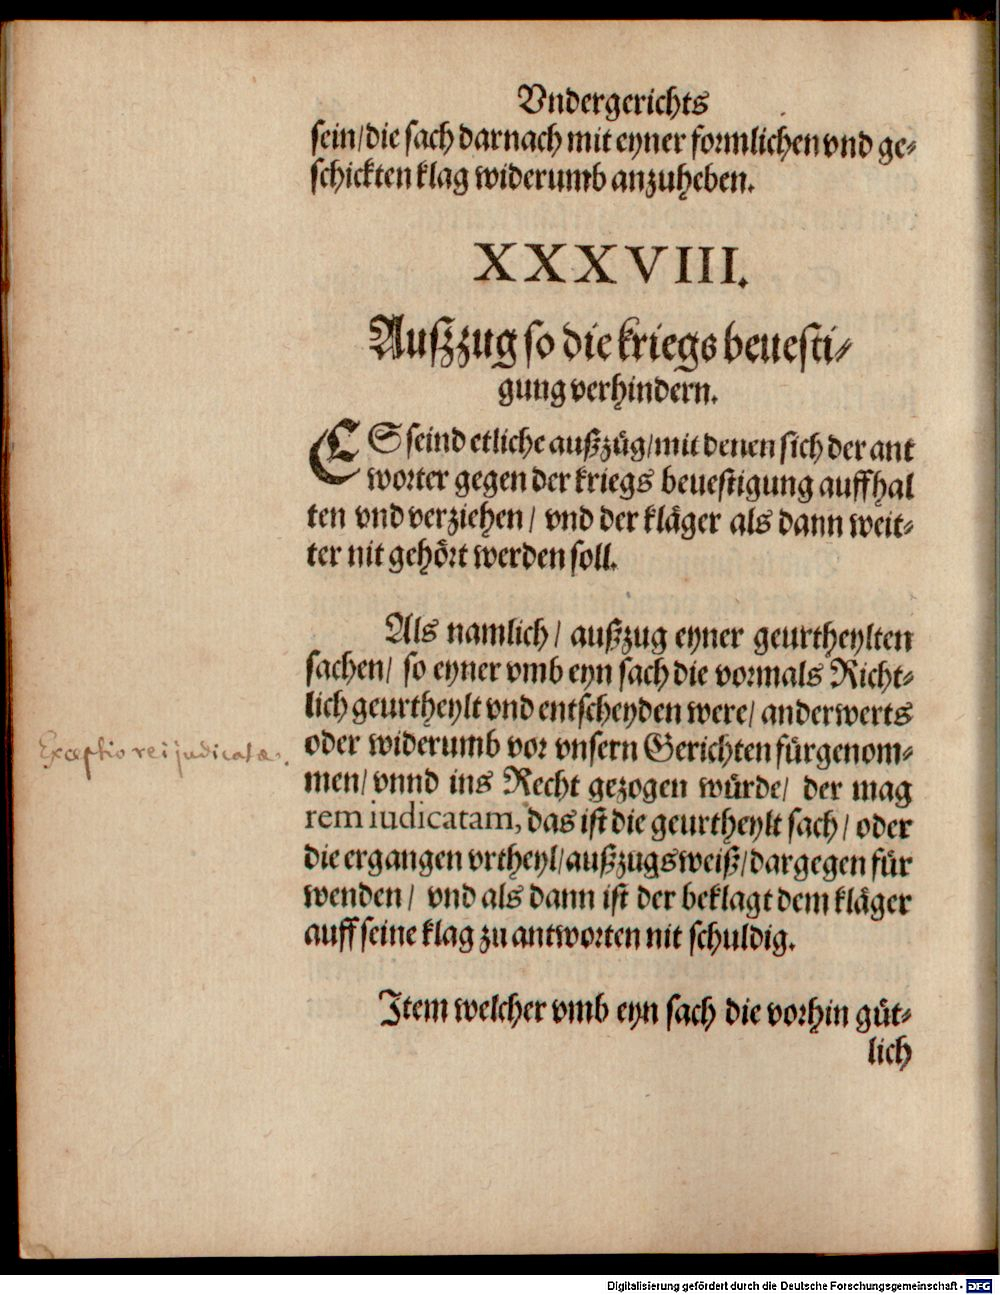 Vndergerichts
sein/die sach darnach mit eyner formlichen vnd ge-
schickten klag widerumb anzuheben.
XXXVIII.
Außzug so die kriegs beuesti-
gung verhindern.
ES seind etliche außzüg/mit denen sich der ant
worter gegen der kriegs beuestigung auffhal
ten vnd verziehen/ vnd der kläger als dann weit-
ter nit gehört werden soll.
Als namlich/ außzug eyner geurtheylten
sachen/ so eyner vmb eyn sach die vormals Richt-
lich geurtheylt vnd entscheyden were/ anderwerts
oder widerumb vor vnsern Gerichten fürgenom-
men/ vnnd ins Recht gezogen würde/ der mag
rem iudicatam, das ist die geurtheylt sach/ oder
die ergangen vrtheyl/außzugsweiß/dargegen für
wenden/ vnd als dann ist der beklagt dem kläger
auff seine klag zu antworten nit schuldig.
Exceptio rei judicatae.
Item welcher vmb eyn sach die vorhin güt-
lich
Digitalisierung gefördert durch die Deutsche Forschungsgemeinschaft - DFG